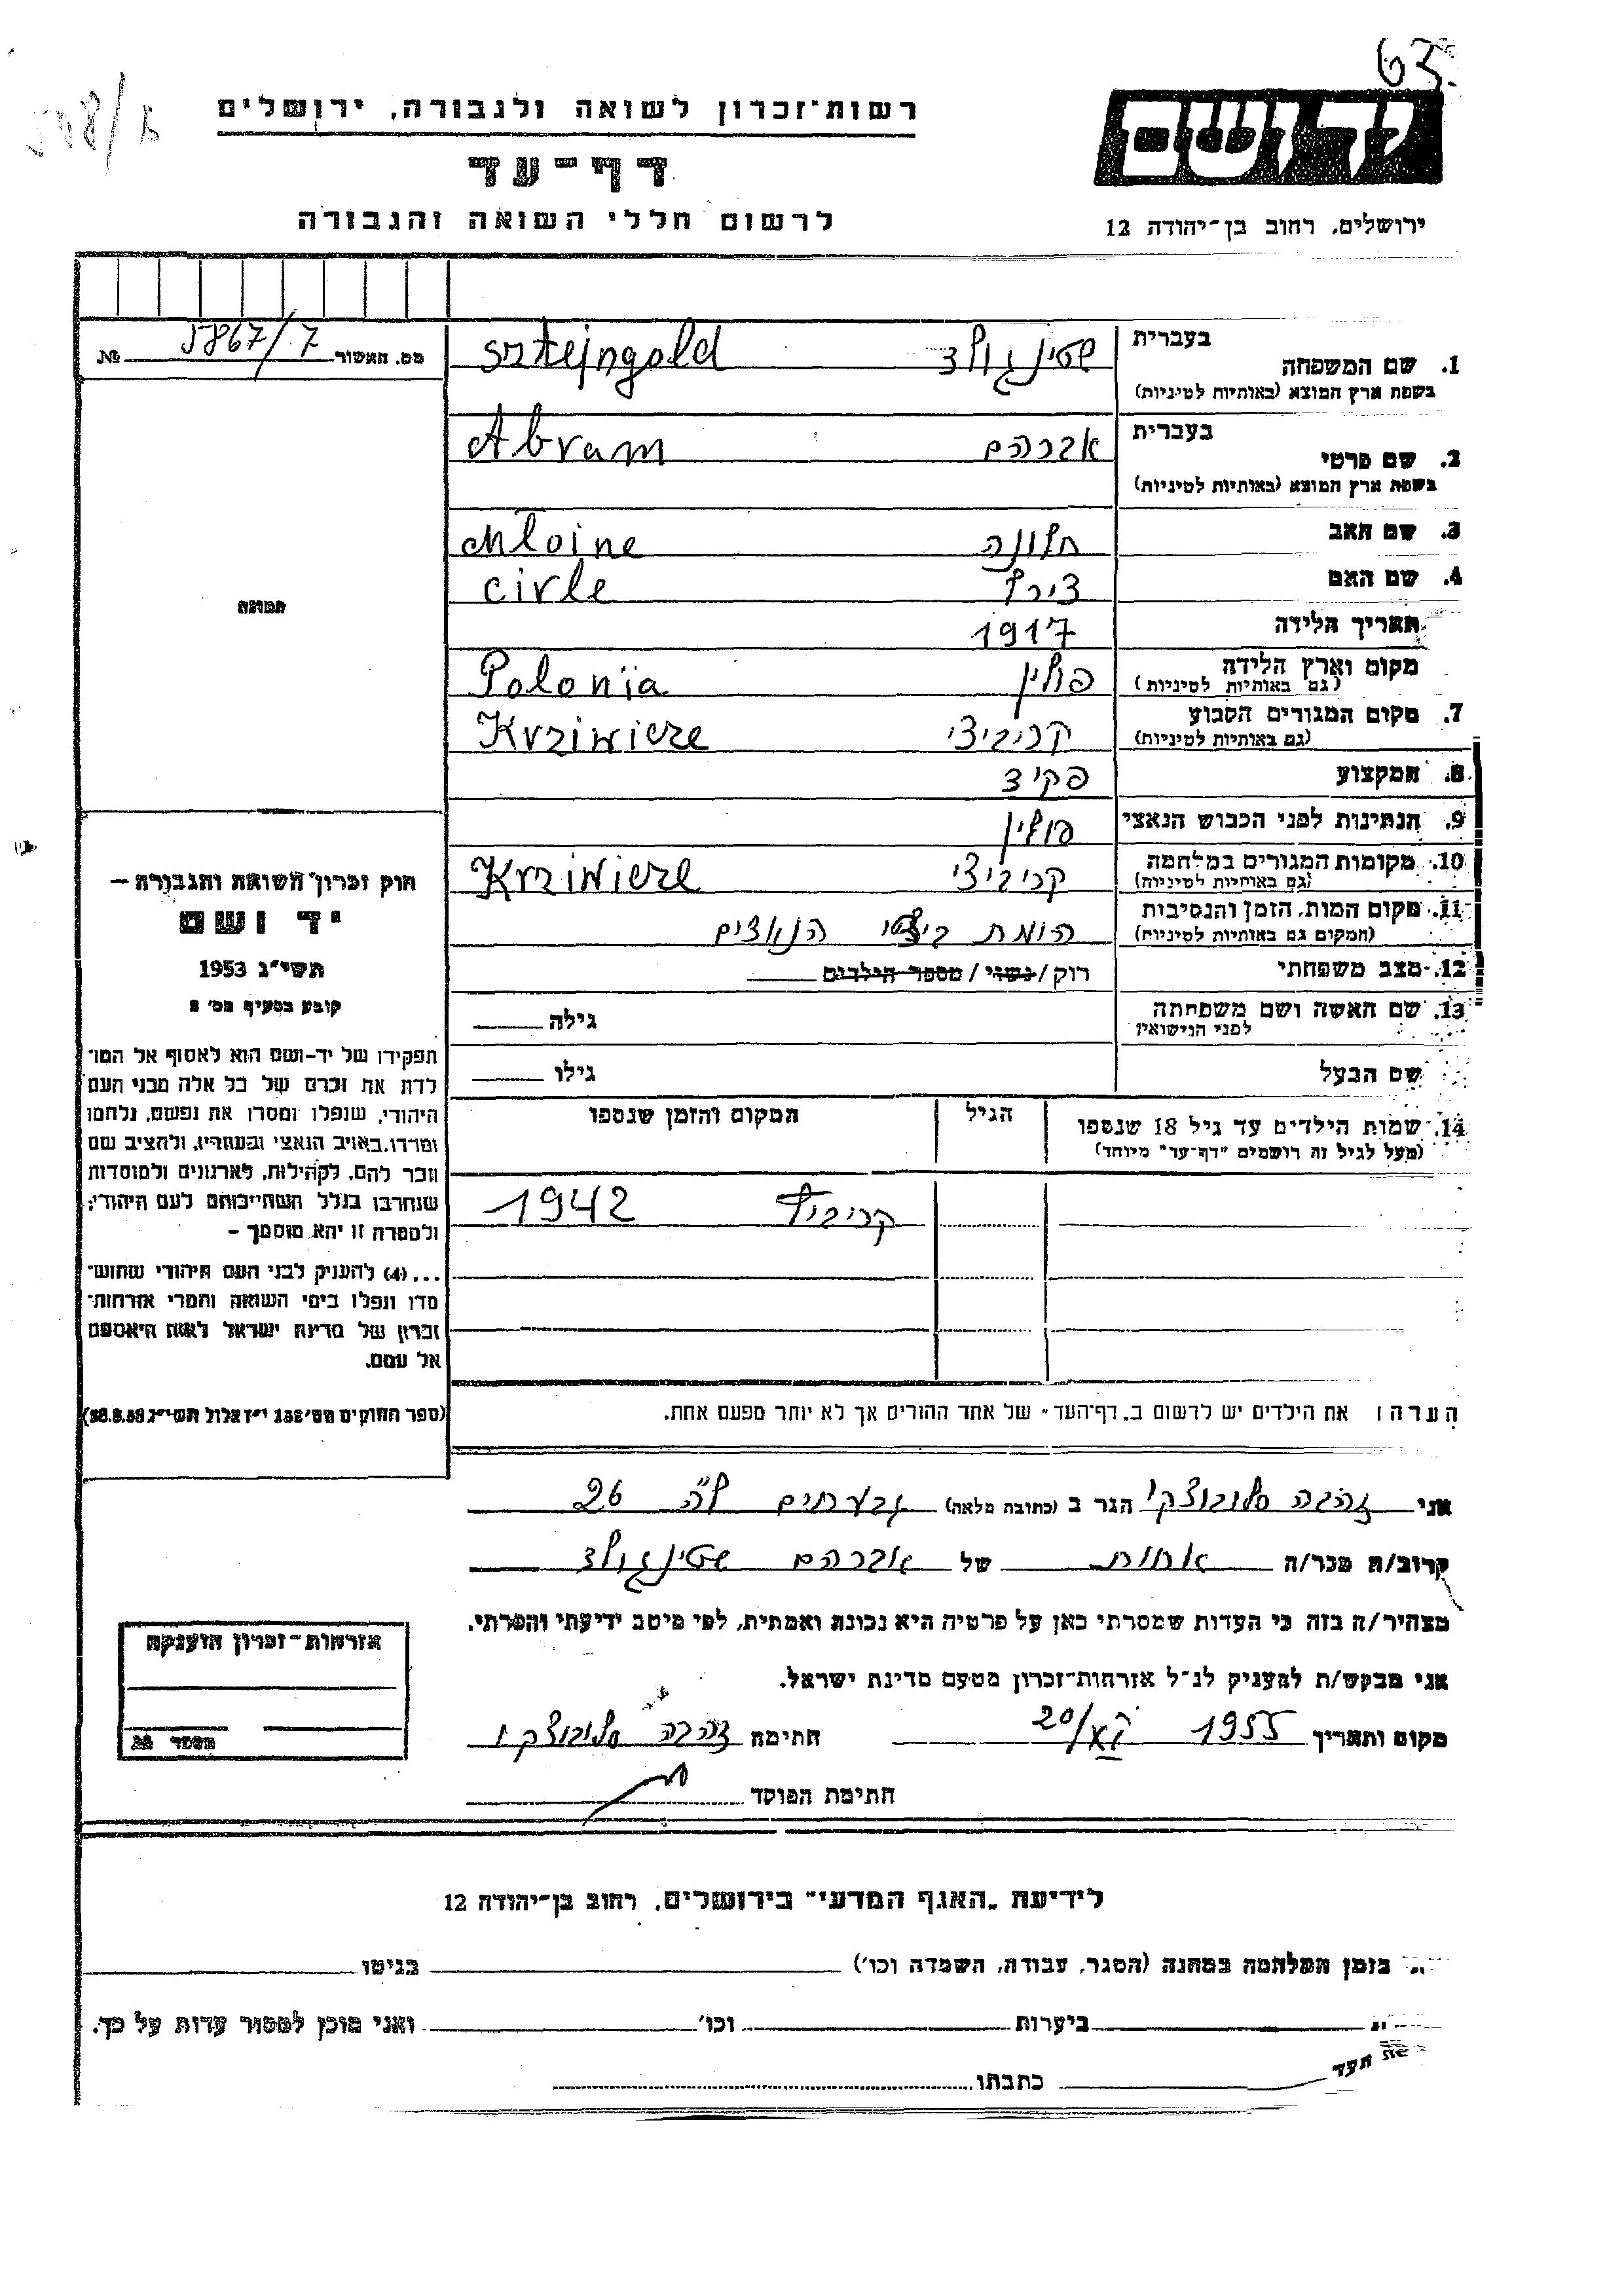 63
רשות־זכרון לשואה ולגבורה, ירושלים
יד ושם
דף־עד
לרשום חללי השואה והגבורה
ירושלים, רחוב בן־יהודה 12
מס. האשור 5867/7 №
1. שם המשפחה
בעברית שטינגולד Sztejngold
בשפת ארץ המוצא (באותיות לטיניות)
2. שם פרטי
בעברית אברהם Abram
בשפת ארץ המוצא (באותיות לטיניות)
3. שם האב חלונה chloine
4. שם האם צירל cirle
תאריך הלידה 1917
מקום וארץ הלידה פולין Polonia
(גם באותיות לטיניות)
7. מקום המגורים הקבוע קריביצי Krziwicze
(גם באותיות לטיניות)
8. המקצוע פקיד
9. הנתינות לפני הכבוש הנאצי פולין
10. מקומות המגורים במלחמה קריביצי Krziwicze
(גם באותיות לטיניות)
11. מקום המות, הזמן והנסיבות הומת בידי הנאצים
(המקום גם באותיות לטיניות)
12. מצב משפחתי רוק / נשוי / מספר הילדים
13. שם האשה ושם משפחתה גילה
לפני הנישואין
שם הבעל גילו
14. שמות הילדים עד גיל 18 שנספו הגיל המקום והזמן שנספו
(מעל לגיל זה רושמים "דף־עד" מיוחד)
1942
הערה: את הילדים יש לרשום ב„דף־העד" של אחד ההורים אך לא יותר מפעם אחת.
תמונה
חוק זכרון השואה והגבורה —
יד ושם
תשי"ג 1953
קובע בסעיף מס' 2
תפקידו של יד-ושם הוא לאסוף אל המו־
לדת את זכרם של כל אלה מבני העם
היהודי, שנפלו ומסרו את נפשם, נלחמו
ומרדו באויב הנאצי ובעוזריו, ולהציב שם
וזכר להם, לקהילות, לארגונים ולמוסדות
שנחרבו בגלל השתייכותם לעם היהודי;
ולמטרה זו יהא מוסמך —
...(4) להעניק לבני העם היהודי שהוש־
מדו ונפלו בימי השואה והמרי אזרחות־
זכרון של מדינת ישראל לאות היאספם
אל עמם.
(ספר החוקים מס' 132 י"ז אלול תשי"ג 28.8.53)
אני זהבה סלובוצקי הגר ב (כתובת מלאה) גבעתיים ל"ה 26
קרוב/ה מכר/ה אחות של אברהם שטינגולד
מצהיר/ה בזה כי העדות שמסרתי כאן על פרטיה היא נכונה ואמתית, לפי מיטב ידיעתי והכרתי.
אני מבקש/ת להעניק לנ"ל אזרחות־זכרון מטעם מדינת ישראל.
מקום ותאריך 1955 20/ חתימה זהבה סלובוצקי
חתימת הפוקד
אזרחות־זכרון הוענקה
מספר №
לידיעת „האגף המדעי" בירושלים, רחוב בן־יהודה 12
בזמן המלחמה במחנה (הסגר, עבודה, השמדה וכו') בגיטו
ביערות וכו' ואני מוכן למסור עדות על כך.
כתבתו